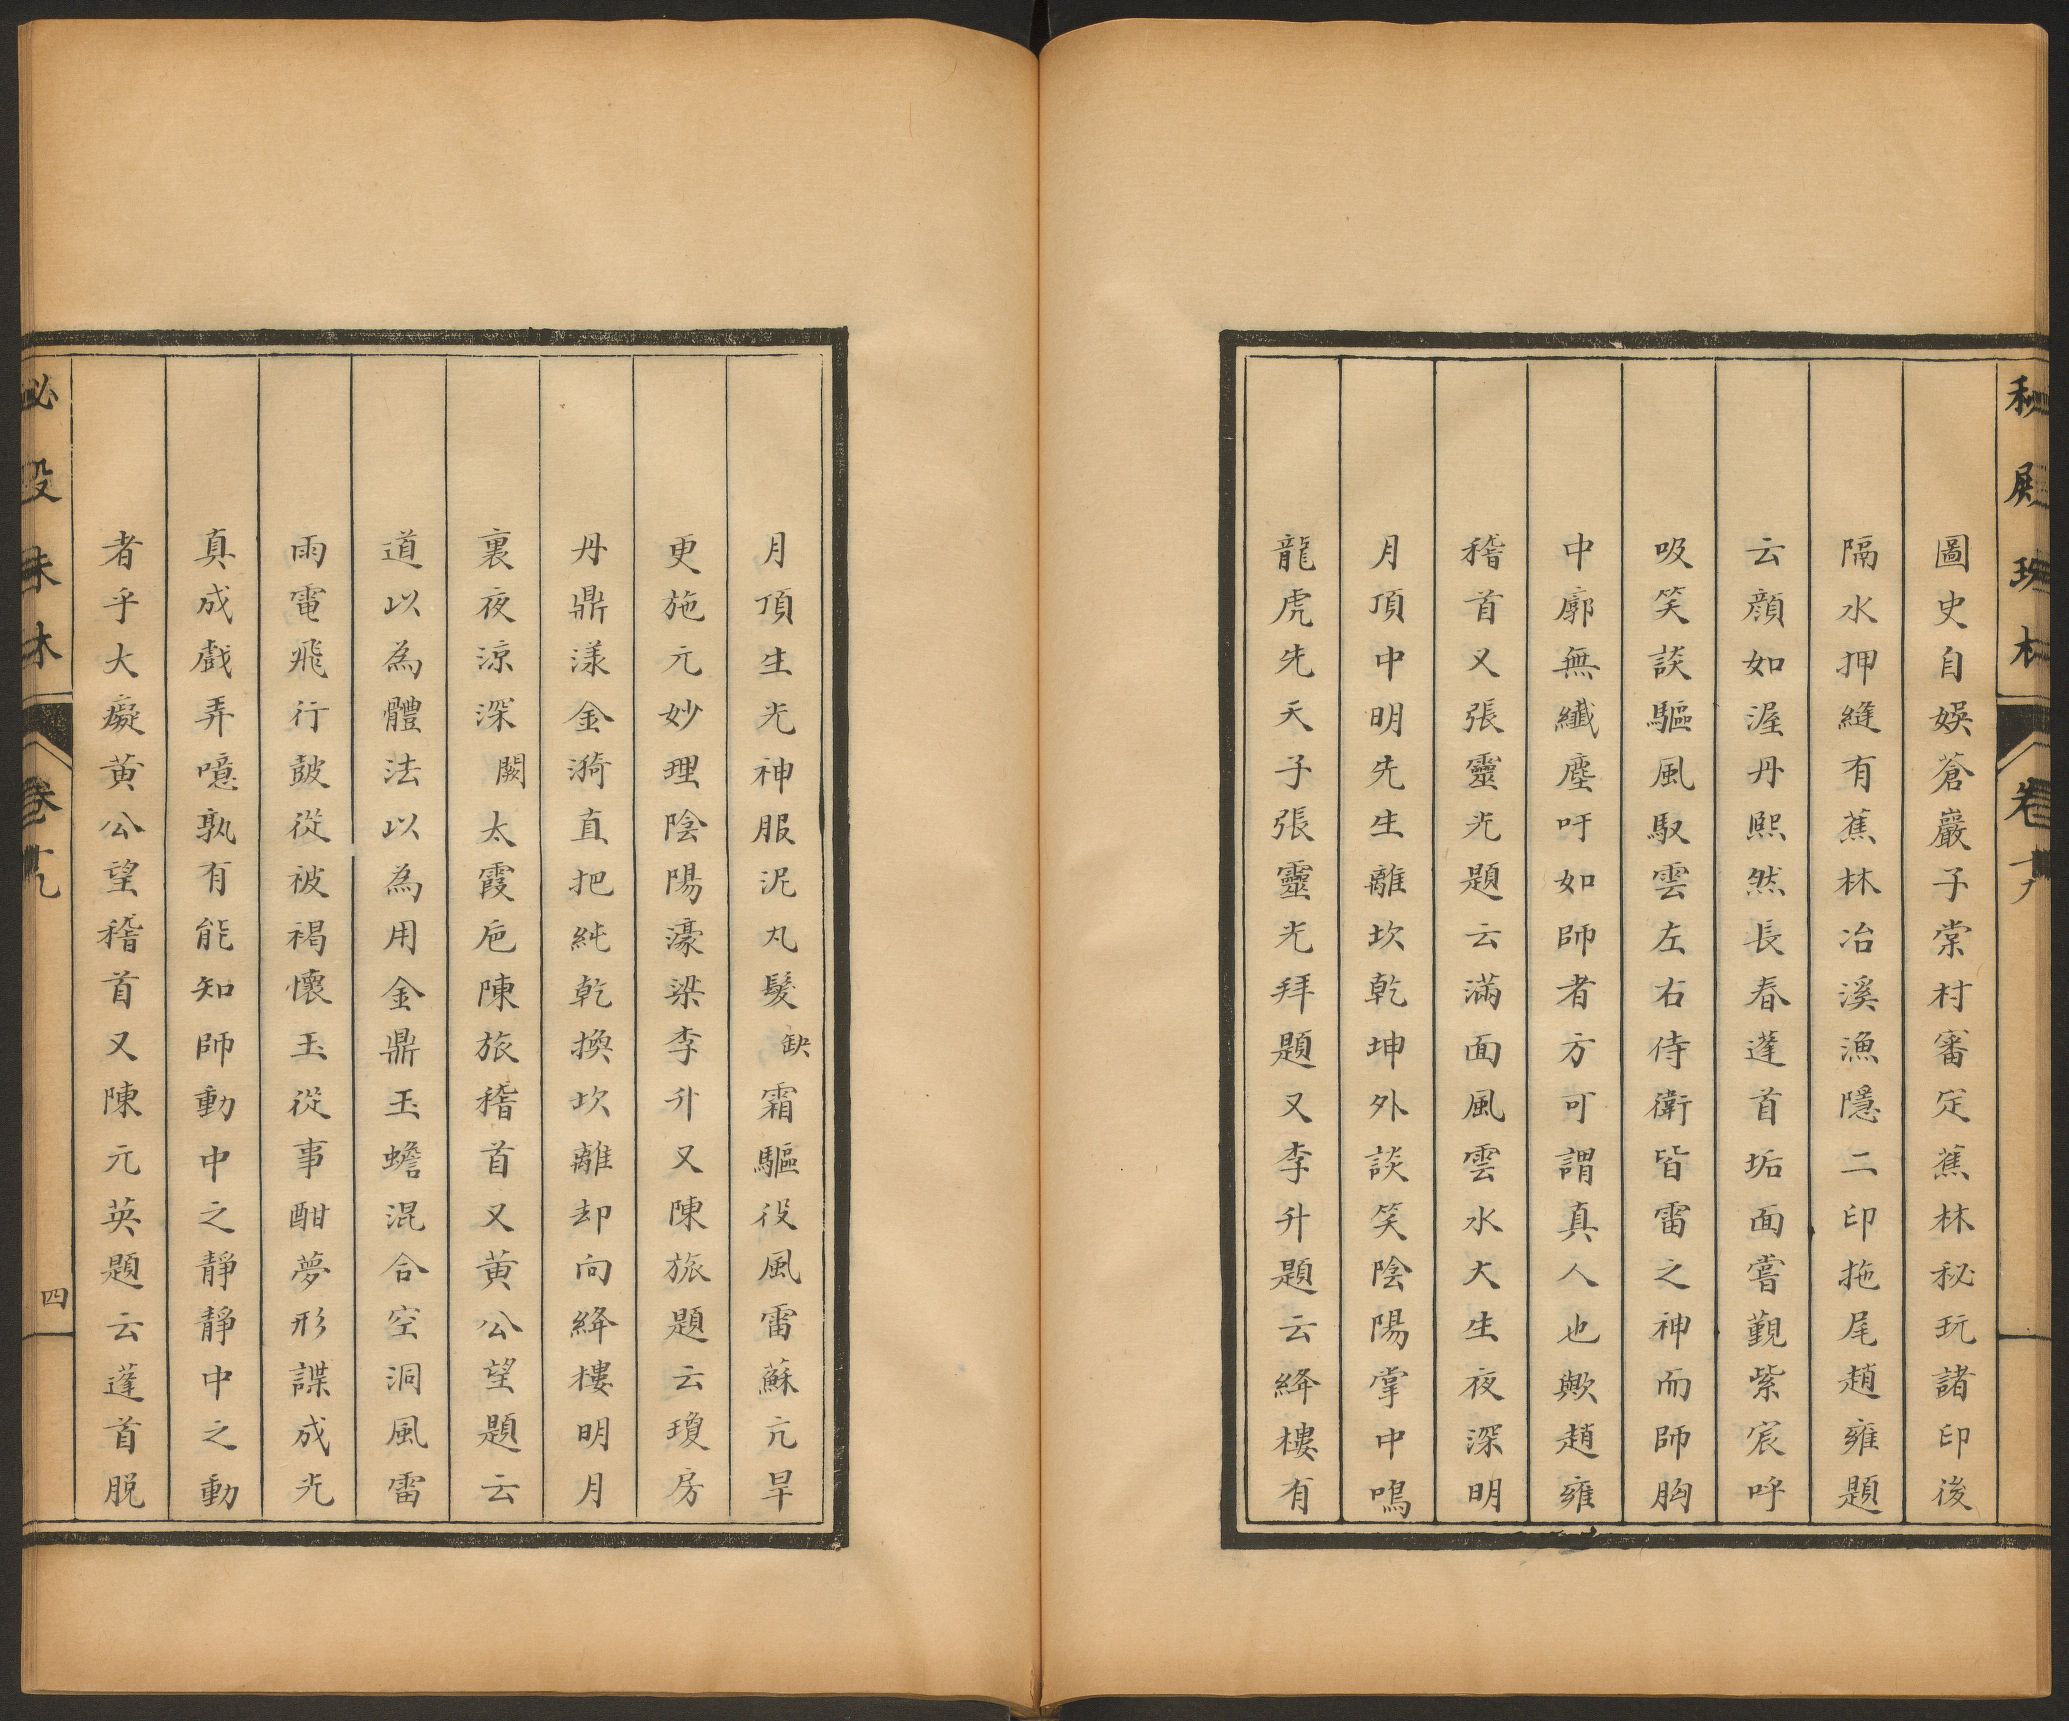 圖史自娛蒼巖子棠村審定蕉林秘玩諸印後
隔水押縫有蕉林冶溪漁隱二印拖尾趙雍題
云顔如渥丹熙然長春蓬首垢面嘗觐紫宸呼
吸笑談驅風馭雲左右侍衛皆雷之神而師胸
中廓無纖塵吁如師者方可謂真人也歟趙雍
稽首又張靈光題云滿面風雲水大生夜深明
月頂中明先生離坎乾坤外談笑陰陽掌中鳴
龍虎先天子張靈光拜題又李升題云絳樓有
月頂生光神服泥丸髮缺霜驅役風雷蘇亢旱
更施元妙理陰陽濠梁李升又陳旅題云瓊房
丹鼎漾金漪直把純乾換坎離却向絳樓明月
裏夜涼深闕太霞卮陳旅稽首又黄公望題云
道以為體法以為用金鼎玉蟾混合空洞風雷
雨電飛行鼓從被褐懷玉從事酣夢形諜成光
真成戲弄噫孰有能知師動中之靜靜中之動
者乎大癡黄公望稽首又陳元英題云蓬首脱
四